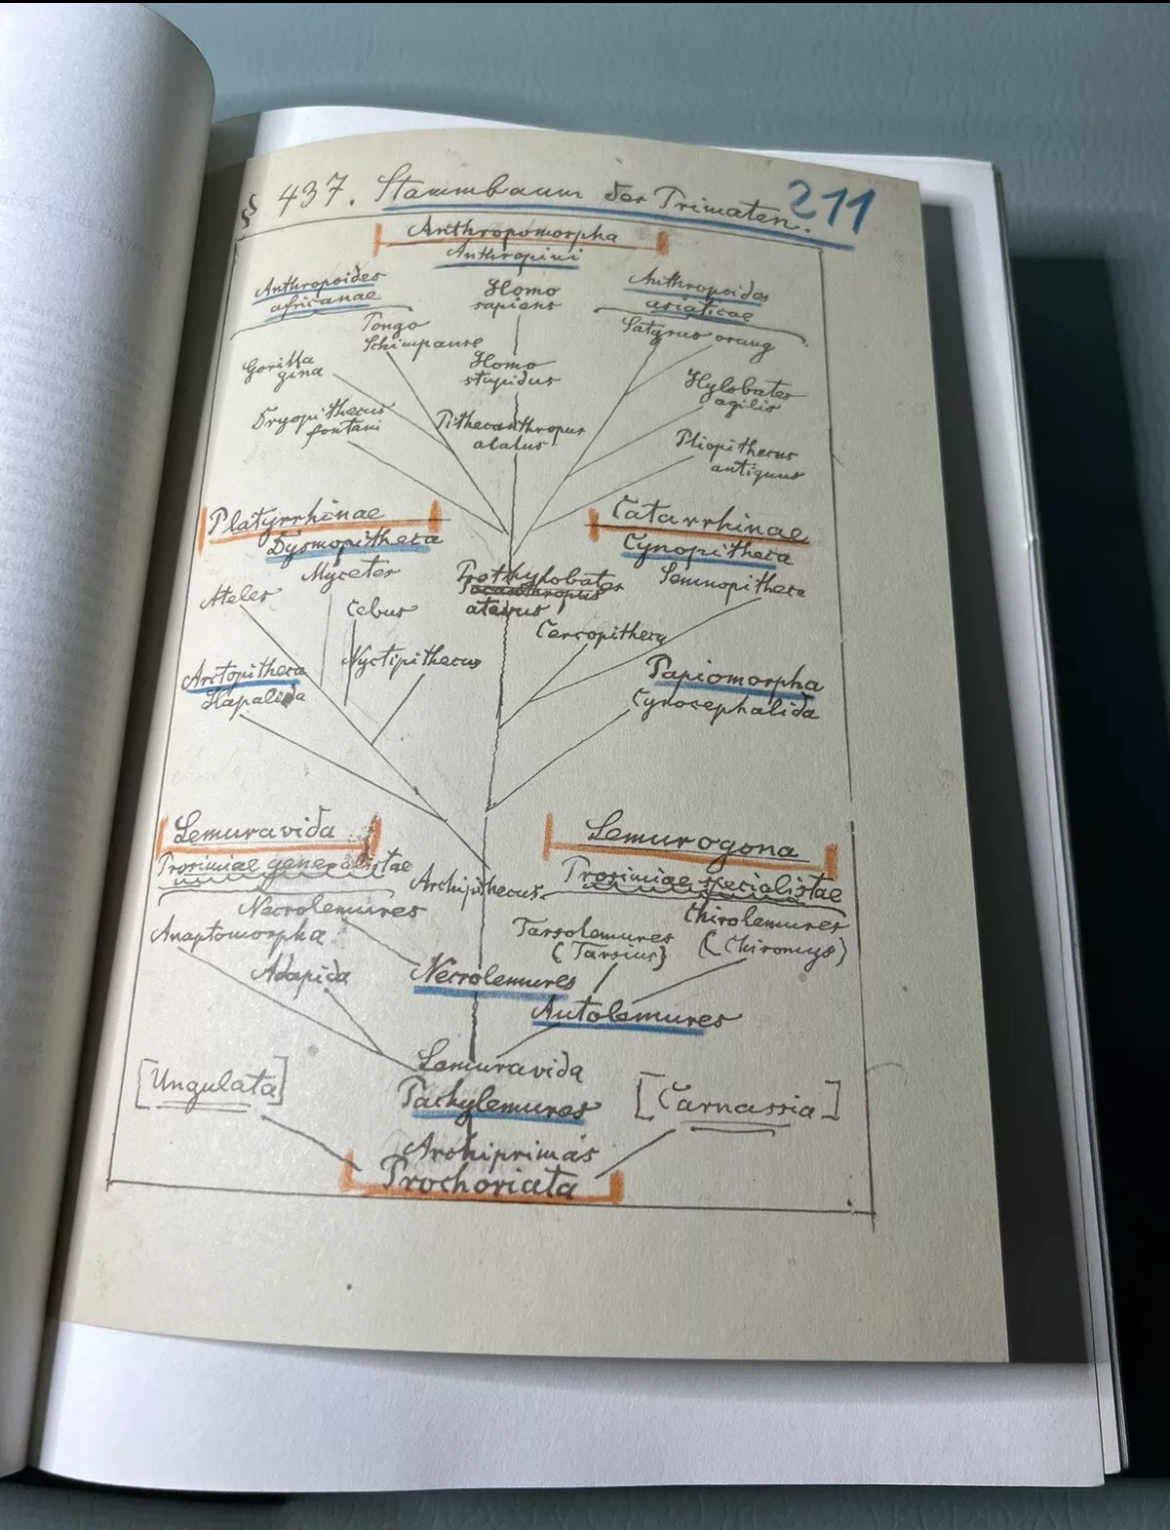 § 437. Stammbaum der Primaten.
211
Anthropomorpha
Anthropini
Anthropoides
africanae
Homo
sapiens
Anthropoides
asiaticae
Pongo
Schimpanse
Satyrus orang
Gorilla
gina
Homo
stupidus
Hylobates
agilis
Dryopithecus
fontani
Pithecanthropus
alalus
Pliopithecus
antiquus
Platyrrhinae
Dysmopitheca
Catarrhinae
Cynopitheca
Mycetes
Prothylobates
atavus
Semnopitheca
Ateles
Cebus
Cercopitheca
Nyctipithecus
Arctopitheca
Hapalida
Papiomorpha
Cynocephalida
Lemuravida
Prosimiae generalistae
Lemurogona
Prosimiae specialistae
Archipithecus
Necrolemures
Chirolemures
(Chiromys)
Anaptomorpha
Tarsolemures
(Tarsius)
Adapida
Necrolemures
Autolemures
Lemuravida
Pachylemures
[Ungulata]
[Carnassia]
Archiprimas
Prochoriata